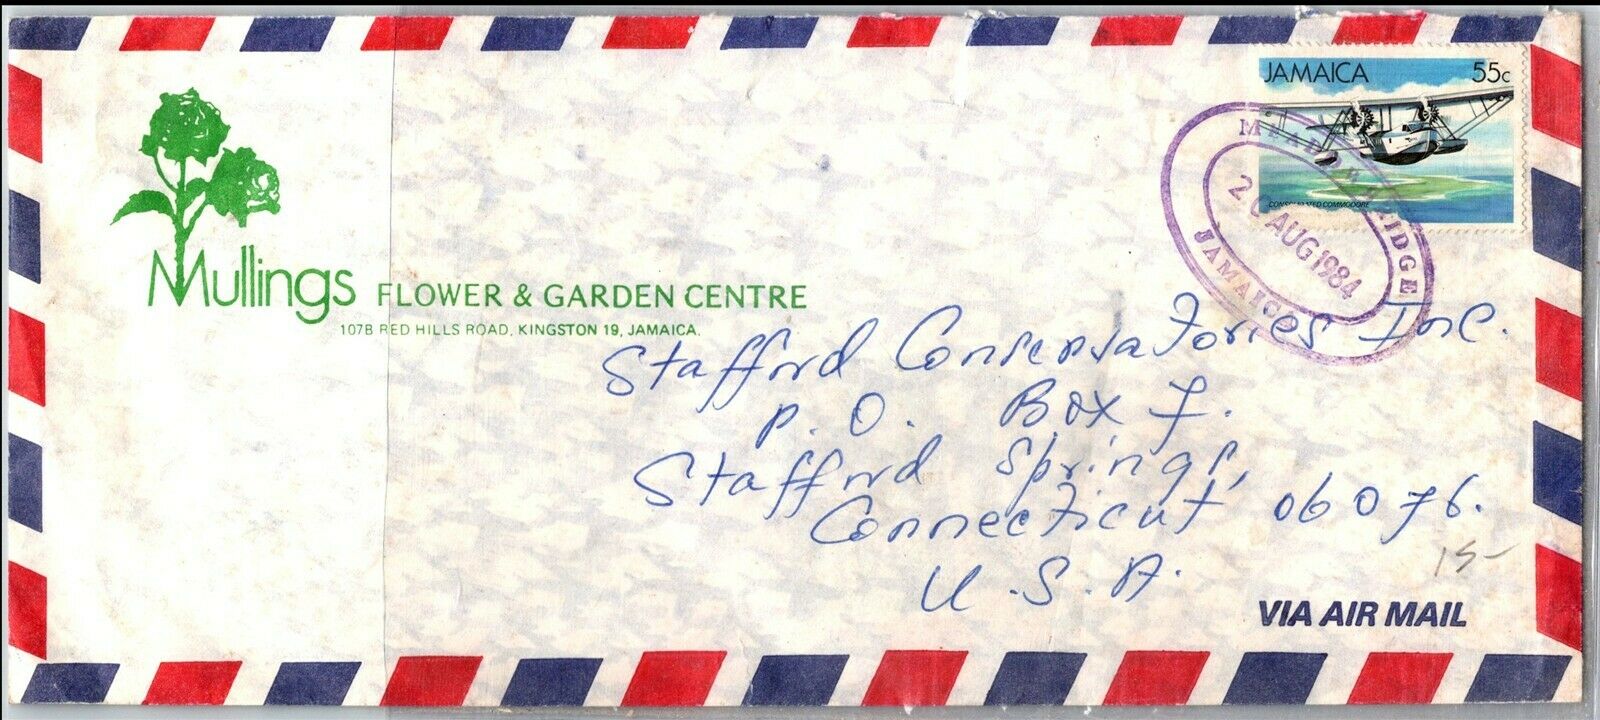 JAMAICA 55c
CONSOLIDATED COMMODORE
RIDGE
20 AUG 1984
JAMAICA
Mullings FLOWER & GARDEN CENTRE
107B RED HILLS ROAD, KINGSTON 19, JAMAICA.
Stafford Conservatories Inc.
P. O. Box I.
Stafford Springs,
Connecticut 06076.
U.S.A.
15-
VIA AIR MAIL